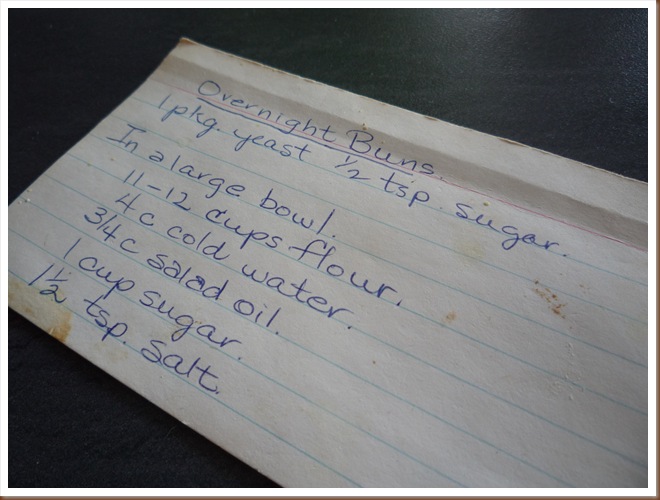 Overnight Buns.
1 pkg. yeast ½ tsp. sugar.
In a large bowl.
11-12 cups flour.
4 c cold water.
3/4 c salad oil.
1 cup sugar.
1½ tsp. salt.